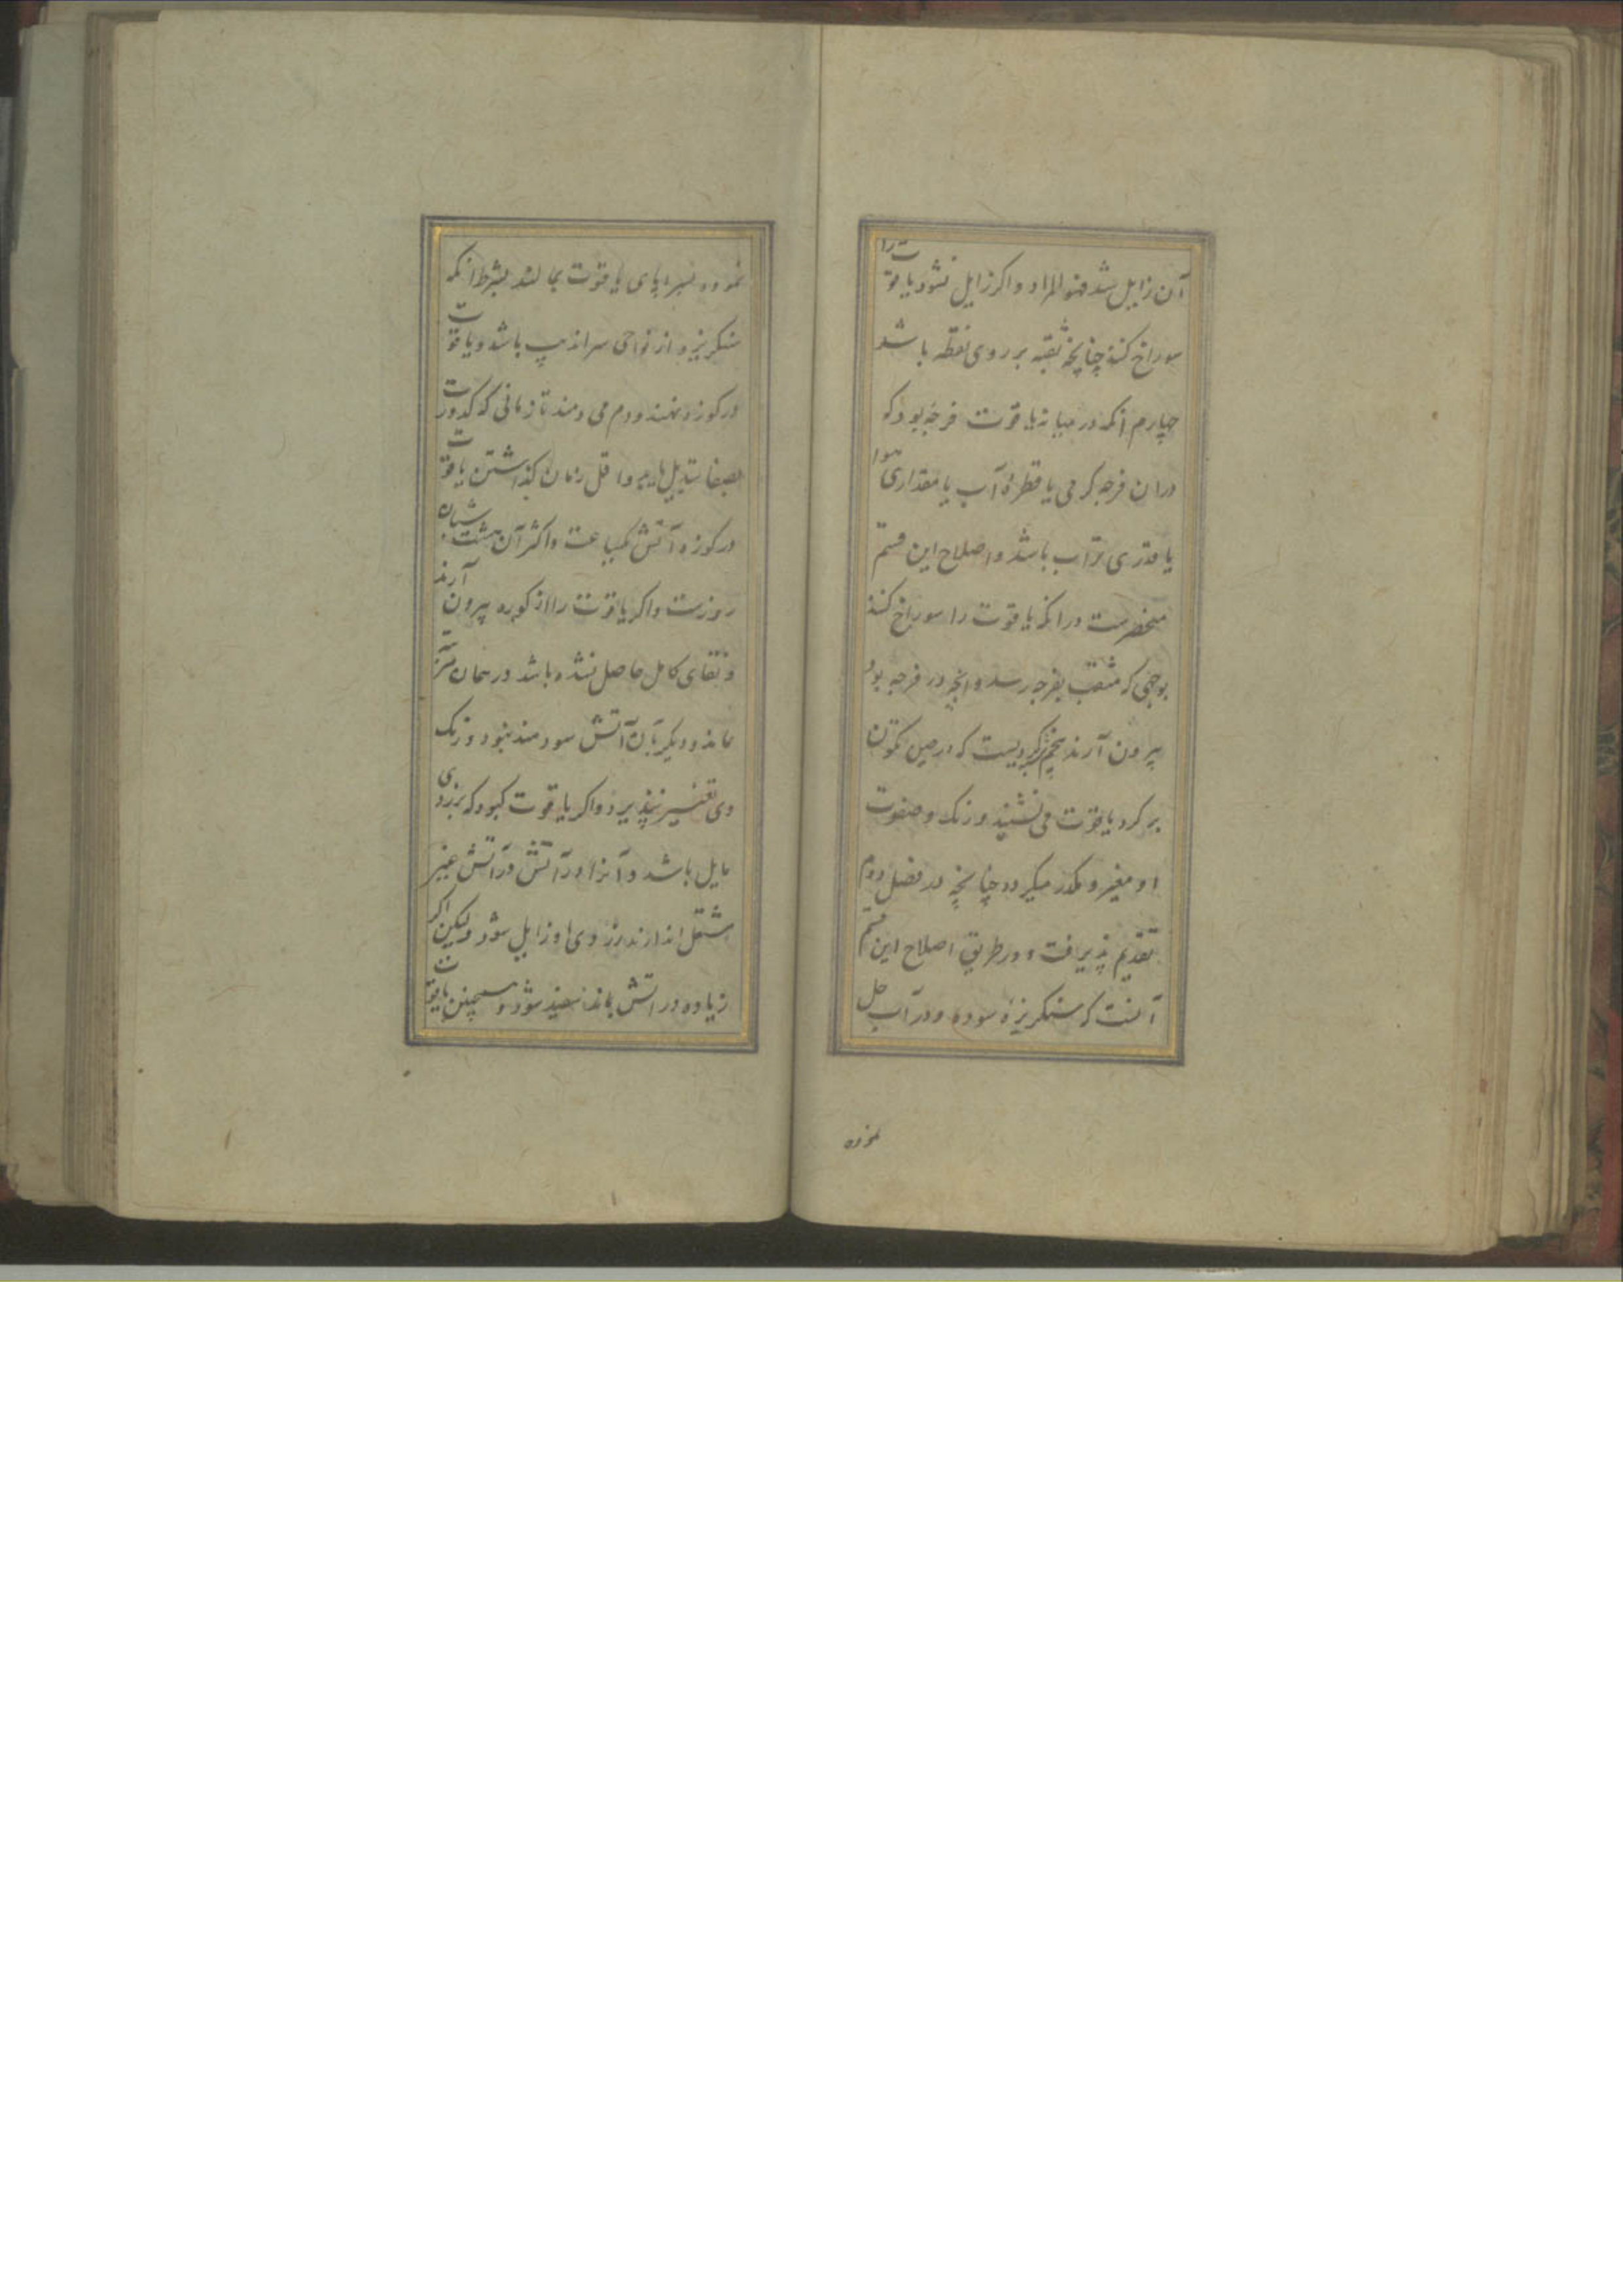 آن زایل شد فهو المراد و اکر زایل نشود یاقوت را
سوراخ کنند چنانچه ثقبه بر روی نقطه باشد
چهارم آنکه در میانه یاقوت فرجه بود که
دران فرجه کرمی یا قطرهٔ آب یا مقداری هوا
یا قدری تراب باشد و اصلاح این قسم
منحصرست در انکه یاقوت را سوراخ کنند
بوجهی که مثقب بفرجه رسد و انچه در فرجه بود
بیرون آرند پنجم کردیست که در حین تکون
بر کرد یاقوت می نشیند و رنک و صفوت
او مغیر و مکدر میکردد چنانچه در فصل دوم
تقدیم پذیرفت و در طریق اصلاح این قسم
آنست که سنکریزه سوده و در آب حل
نموده
نموده بسراپای یاقوت بمالند بشرط انکه
سنکریزه از نواحی سراندیپ باشد و یاقوت
در کوزه نهند و دم می دمند تا زمانی که کدورت
بصفا تبدیل یابد و اقل زمان کذاشتن یاقوت
در کوزه آتش یکساعت و اکثر آن هشت شبان
روزست و اکر یاقوت را از کوره بیرون آرند
و نقای کامل حاصل نشده باشد در همان مرتبه
بماند و دیکر بآن آتش سودمند نبود و رنک
وی تغییر نپذیرد و اکر یاقوت کبود که بزردی
مایل باشد و آنرا در آتش در آتش غیر
مشتعل اندازند زردی او زایل شود ولیکن اکر
زیاده در اتش بماند سفید شود و همچنین یاقوت